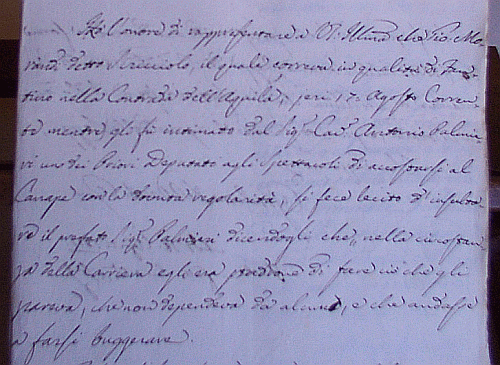 Ho l'onore di rappresentare a V. S. Illma che Gio. Mo-
randi detto Stecciolo, il quale correva in qualità di Fan-
tino nella Contrada dell'Aquila, jeri 17. Agosto Corren-
te mentre gli fù intimato dal Sigr Cavr Antonio Palmie-
ri uno dei Priori Deputato agli Spettacoli di accostarsi al
Canape con la dovuta regolarità, si fece lecito d'insulta-
re il prefato Sigr Palmieri dicendogli che, nella circostan-
za della Carriera egli era padrone di fare ciò che gli
pareva, che non dependeva da alcuno, e che andasse
a farsi buggerare.